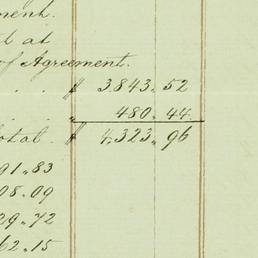 ment.
d at
of Agreement.
. . . $ 3.843.52
" 480.44
Total. $ 4.323.96
01.83
08.09
29.72
62.15